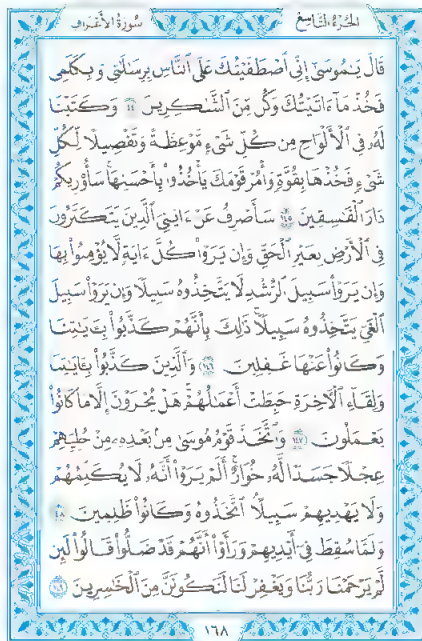 الجزء التاسع سورة الأعراف
قَالَ يَٰمُوسَىٰٓ إِنِّي ٱصۡطَفَيۡتُكَ عَلَى ٱلنَّاسِ بِرِسَٰلَٰتِي وَبِكَلَٰمِي
فَخُذۡ مَآ ءَاتَيۡتُكَ وَكُن مِّنَ ٱلشَّٰكِرِينَ ١٤٤ وَكَتَبۡنَا
لَهُۥ فِي ٱلۡأَلۡوَاحِ مِن كُلِّ شَيۡءٖ مَّوۡعِظَةٗ وَتَفۡصِيلٗا لِّكُلِّ
شَيۡءٖ فَخُذۡهَا بِقُوَّةٖ وَأۡمُرۡ قَوۡمَكَ يَأۡخُذُواْ بِأَحۡسَنِهَاۚ سَأُوْرِيكُمۡ
دَارَ ٱلۡفَٰسِقِينَ ١٤٥ سَأَصۡرِفُ عَنۡ ءَايَٰتِيَ ٱلَّذِينَ يَتَكَبَّرُونَ
فِي ٱلۡأَرۡضِ بِغَيۡرِ ٱلۡحَقِّ وَإِن يَرَوۡاْ كُلَّ ءَايَةٖ لَّا يُؤۡمِنُواْ بِهَا
وَإِن يَرَوۡاْ سَبِيلَ ٱلرُّشۡدِ لَا يَتَّخِذُوهُ سَبِيلٗا وَإِن يَرَوۡاْ سَبِيلَ
ٱلۡغَيِّ يَتَّخِذُوهُ سَبِيلٗاۚ ذَٰلِكَ بِأَنَّهُمۡ كَذَّبُواْ بِـَٔايَٰتِنَا
وَكَانُواْ عَنۡهَا غَٰفِلِينَ ١٤٦ وَٱلَّذِينَ كَذَّبُواْ بِـَٔايَٰتِنَا
وَلِقَآءِ ٱلۡأٓخِرَةِ حَبِطَتۡ أَعۡمَٰلُهُمۡۚ هَلۡ يُجۡزَوۡنَ إِلَّا مَا كَانُواْ
يَعۡمَلُونَ ١٤٧ وَٱتَّخَذَ قَوۡمُ مُوسَىٰ مِنۢ بَعۡدِهِۦ مِنۡ حُلِيِّهِمۡ
عِجۡلٗا جَسَدٗا لَّهُۥ خُوَارٌۚ أَلَمۡ يَرَوۡاْ أَنَّهُۥ لَا يُكَلِّمُهُمۡ
وَلَا يَهۡدِيهِمۡ سَبِيلًاۘ ٱتَّخَذُوهُ وَكَانُواْ ظَٰلِمِينَ ١٤٨
وَلَمَّا سُقِطَ فِيٓ أَيۡدِيهِمۡ وَرَأَوۡاْ أَنَّهُمۡ قَدۡ ضَلُّواْ قَالُواْ لَئِن
لَّمۡ يَرۡحَمۡنَا رَبُّنَا وَيَغۡفِرۡ لَنَا لَنَكُونَنَّ مِنَ ٱلۡخَٰسِرِينَ ١٤٩
١٦٨